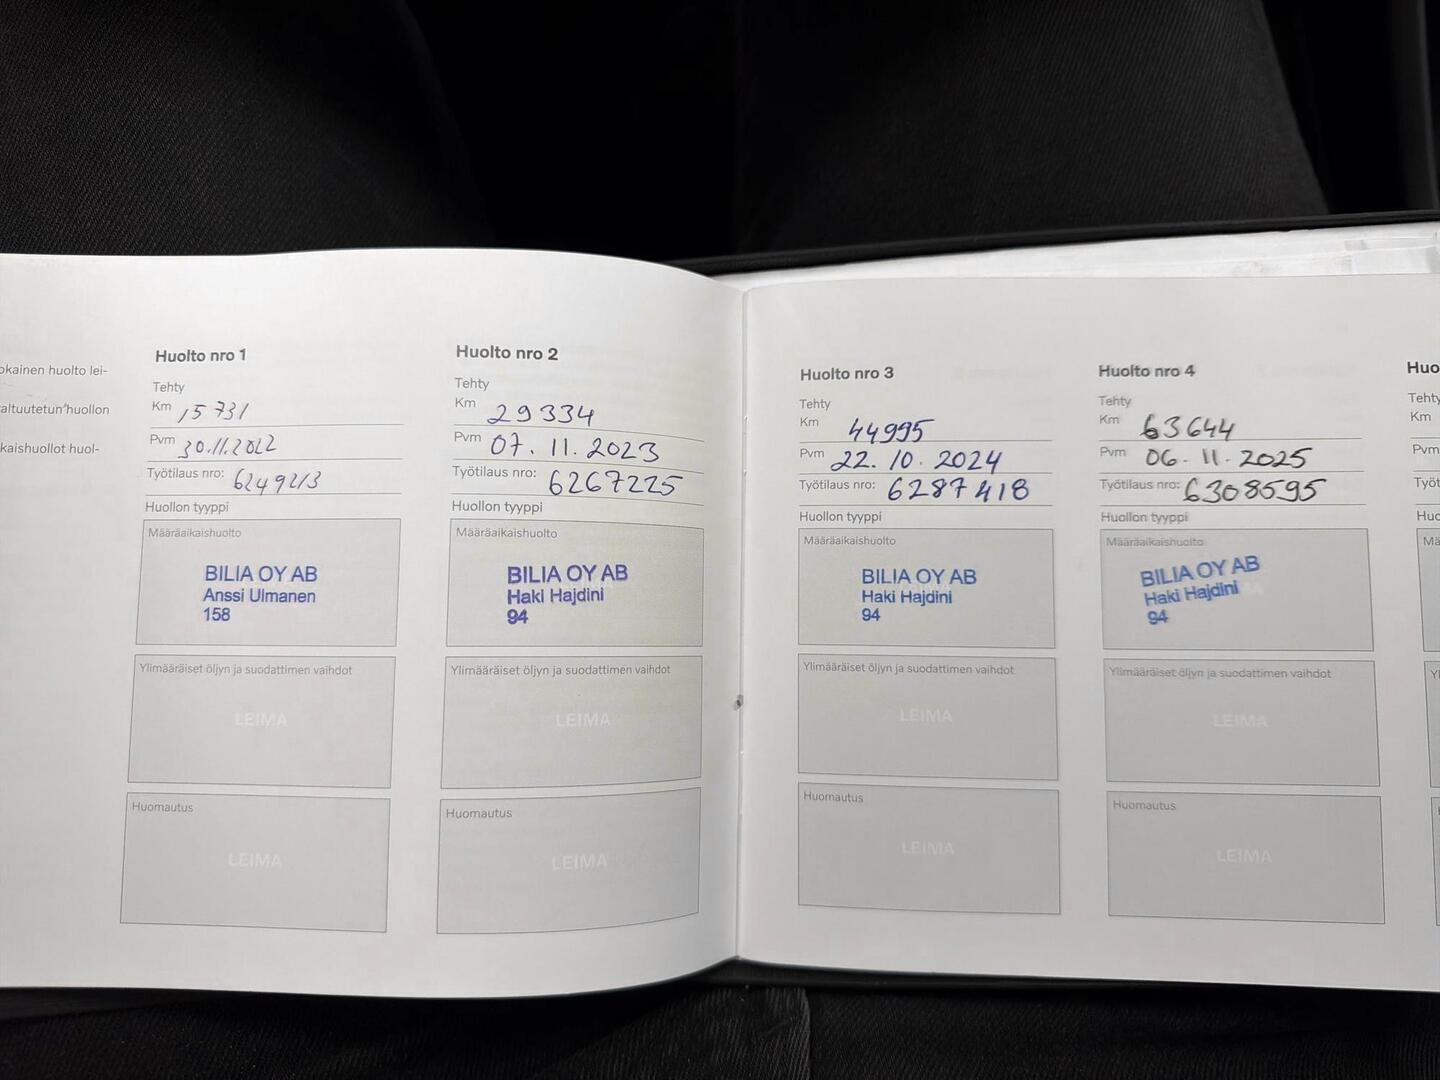 okainen huolto lei-
altuutetun huollon
kaishuollot huol-
Huolto nro 1
Tehty
Km 15 731
Pvm 30.11.2022
Työtilaus nro: 6249213
Huollon tyyppi
Määräaikaishuolto
BILIA OY AB
Anssi Ulmanen
158
Ylimääräiset öljyn ja suodattimen vaihdot
LEIMA
Huomautus
LEIMA
Huolto nro 2
Tehty
Km 29 334
Pvm 07. 11. 2023
Työtilaus nro: 6267225
Huollon tyyppi
Määräaikaishuolto
BILIA OY AB
Haki Hajdini
94
Ylimääräiset öljyn ja suodattimen vaihdot
LEIMA
Huomautus
LEIMA
Huolto nro 3
Tehty
Km 44995
Pvm 22. 10. 2024
Työtilaus nro: 6287418
Huollon tyyppi
Määräaikaishuolto
BILIA OY AB
Haki Hajdini
94
Ylimääräiset öljyn ja suodattimen vaihdot
LEIMA
Huomautus
LEIMA
Huolto nro 4
Tehty
Km 63644
Pvm 06. 11. 2025
Työtilaus nro: 6308595
Huollon tyyppi
Määräaikaishuolto
BILIA OY AB
Haki Hajdini
94
Ylimääräiset öljyn ja suodattimen vaihdot
LEIMA
Huomautus
LEIMA
Huo
Tehty
Km
Pvm
Työt
Huo
Mä
Yl